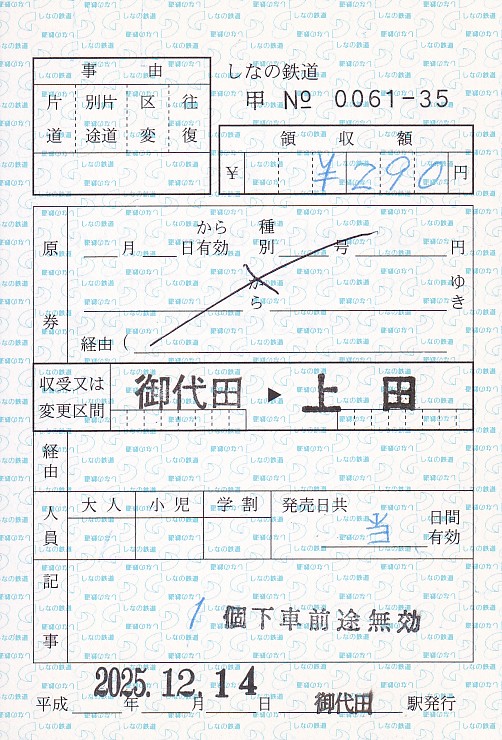 事由
片道 別片途道 区変 往復
しなの鉄道
甲 № 0061-35
領収額
¥ ¥290 円
原券
から 種
月 日有効 別 号 円
から ゆき
経由 (
収受又は
変更区間
御代田 ▶ 上田
経由
人員
大人 小児 学割 発売日共
当 日間
有効
記事
1 個下車前途無効
2025.12.14
平成 年 月 日 御代田 駅発行